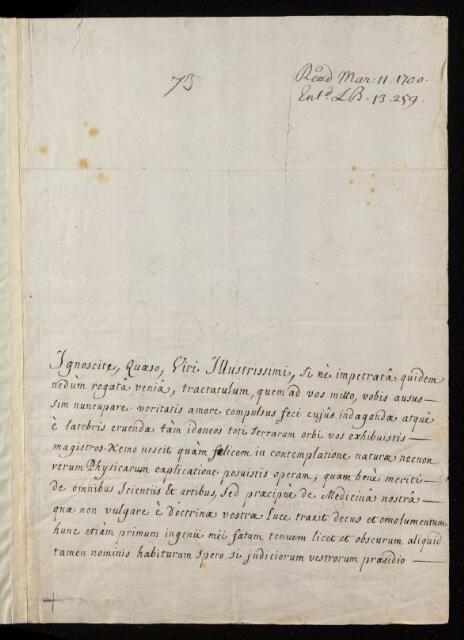 75
Read Mar: 11. 1700.
Ent.d LB. 13. 259.
Ignoscite, Quæso, Viri Illustrissimi, si nè impetratâ quidem
nedùm rogatâ veniâ, tractatulum, quem ad vos mitto, vobis ausus
sim nuncupare. veritatis amore compulsus feci cujûs indagandæ atquè
è latebris eruendæ tàm idoneos toti terrarum orbi vos exhibuistis
magistros. Nemo nescit quàm fælicem in contemplatione naturæ necnon
verum Physicarum explicatione posuistis operam; quam benè meriti
de omnibus scientiis et artibus, sed præcipùe de Medicinâ nostrâ
quæ non vulgare è doctrinæ vestræ luce traxit decus et emolumentum
hunc etiàm primum ingenii mèi fætum tenuem licet et obscurum aliquid
tamen nominis habiturum spero si judiciorum vestrorum præsidio